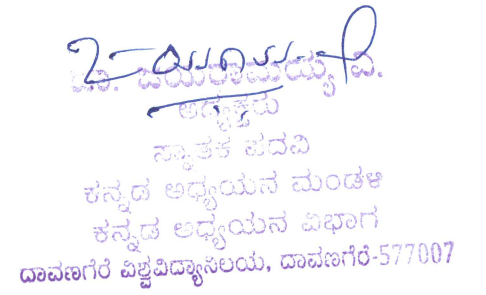 ಡಾ. ಜಯರಾಮಯ್ಯ ವಿ.
ಅಧ್ಯಕ್ಷರು
ಸ್ನಾತಕ ಪದವಿ
ಕನ್ನಡ ಅಧ್ಯಯನ ಮಂಡಳಿ
ಕನ್ನಡ ಅಧ್ಯಯನ ವಿಭಾಗ
ದಾವಣಗೆರೆ ವಿಶ್ವವಿದ್ಯಾನಿಲಯ, ದಾವಣಗೆರೆ-577007